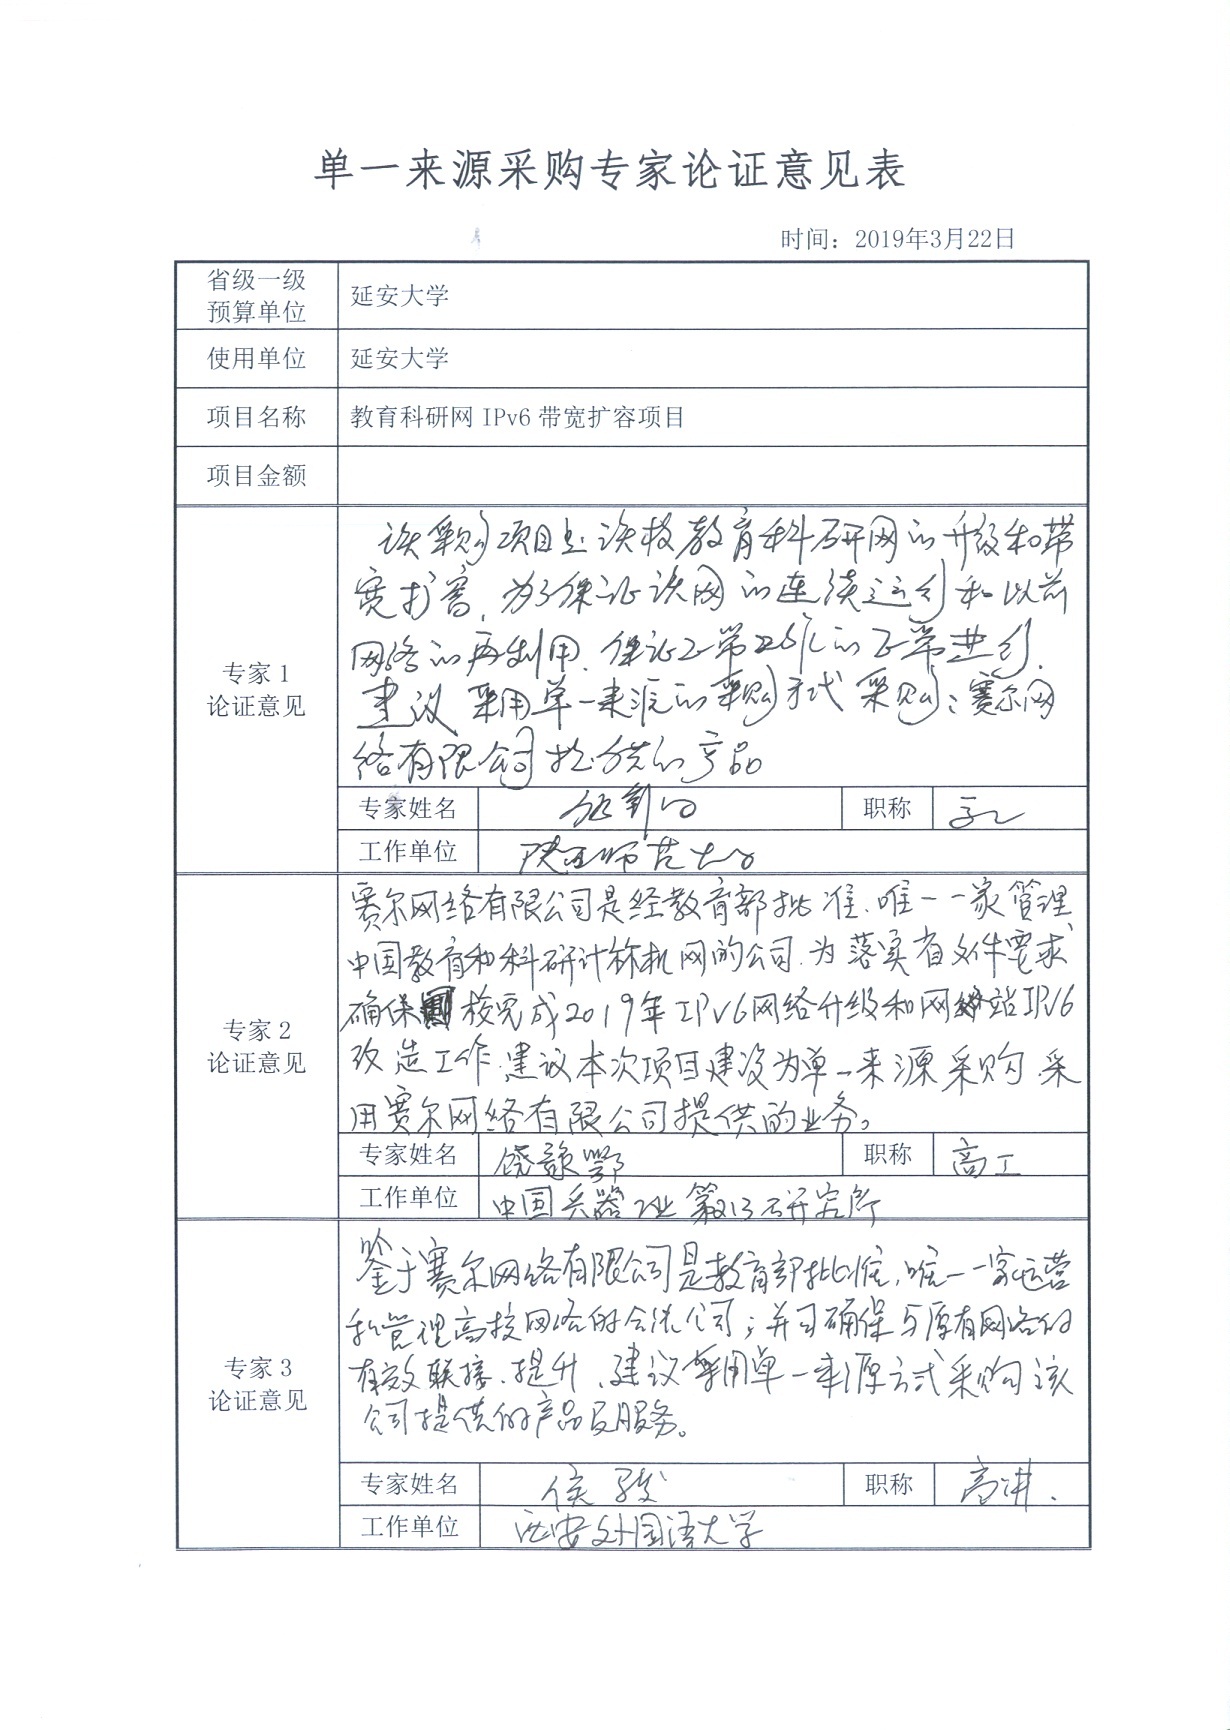 单一来源采购专家论证意见表
时间：2019年3月22日
省级一级
预算单位
延安大学
使用单位
延安大学
项目名称
教育科研网 IPv6 带宽扩容项目
项目金额
专家 1
论证意见
该采购项目是该校教育科研网的升级和带
宽扩容，为了保证该网的连续运行和以前
网络的再利用，保证正常业务的正常进行，
建议采用单一来源的采购方式采购：赛尔网
络有限公司提供的产品
专家姓名
职称
高工
工作单位
陕西师范大学
专家 2
论证意见
赛尔网络有限公司是经教育部批准、唯一一家管理
中国教育和科研计算机网的公司，为落实省文件要求
确保 校完成2019年IPV6网络升级和网站IPV6
改造工作，建议本次项目建设为单一来源采购，采
用赛尔网络有限公司提供的业务。
专家姓名
职称
高工
工作单位
中国兵器工业第213研究所
专家 3
论证意见
鉴于赛尔网络有限公司是教育部批准，唯一一家运营
和管理高校网络的合法公司；并可确保与原有网络的
有效联接、提升，建议采用单一来源方式采购该
公司提供的产品及服务。
专家姓名
侯骏
职称
高讲.
工作单位
西安外国语大学